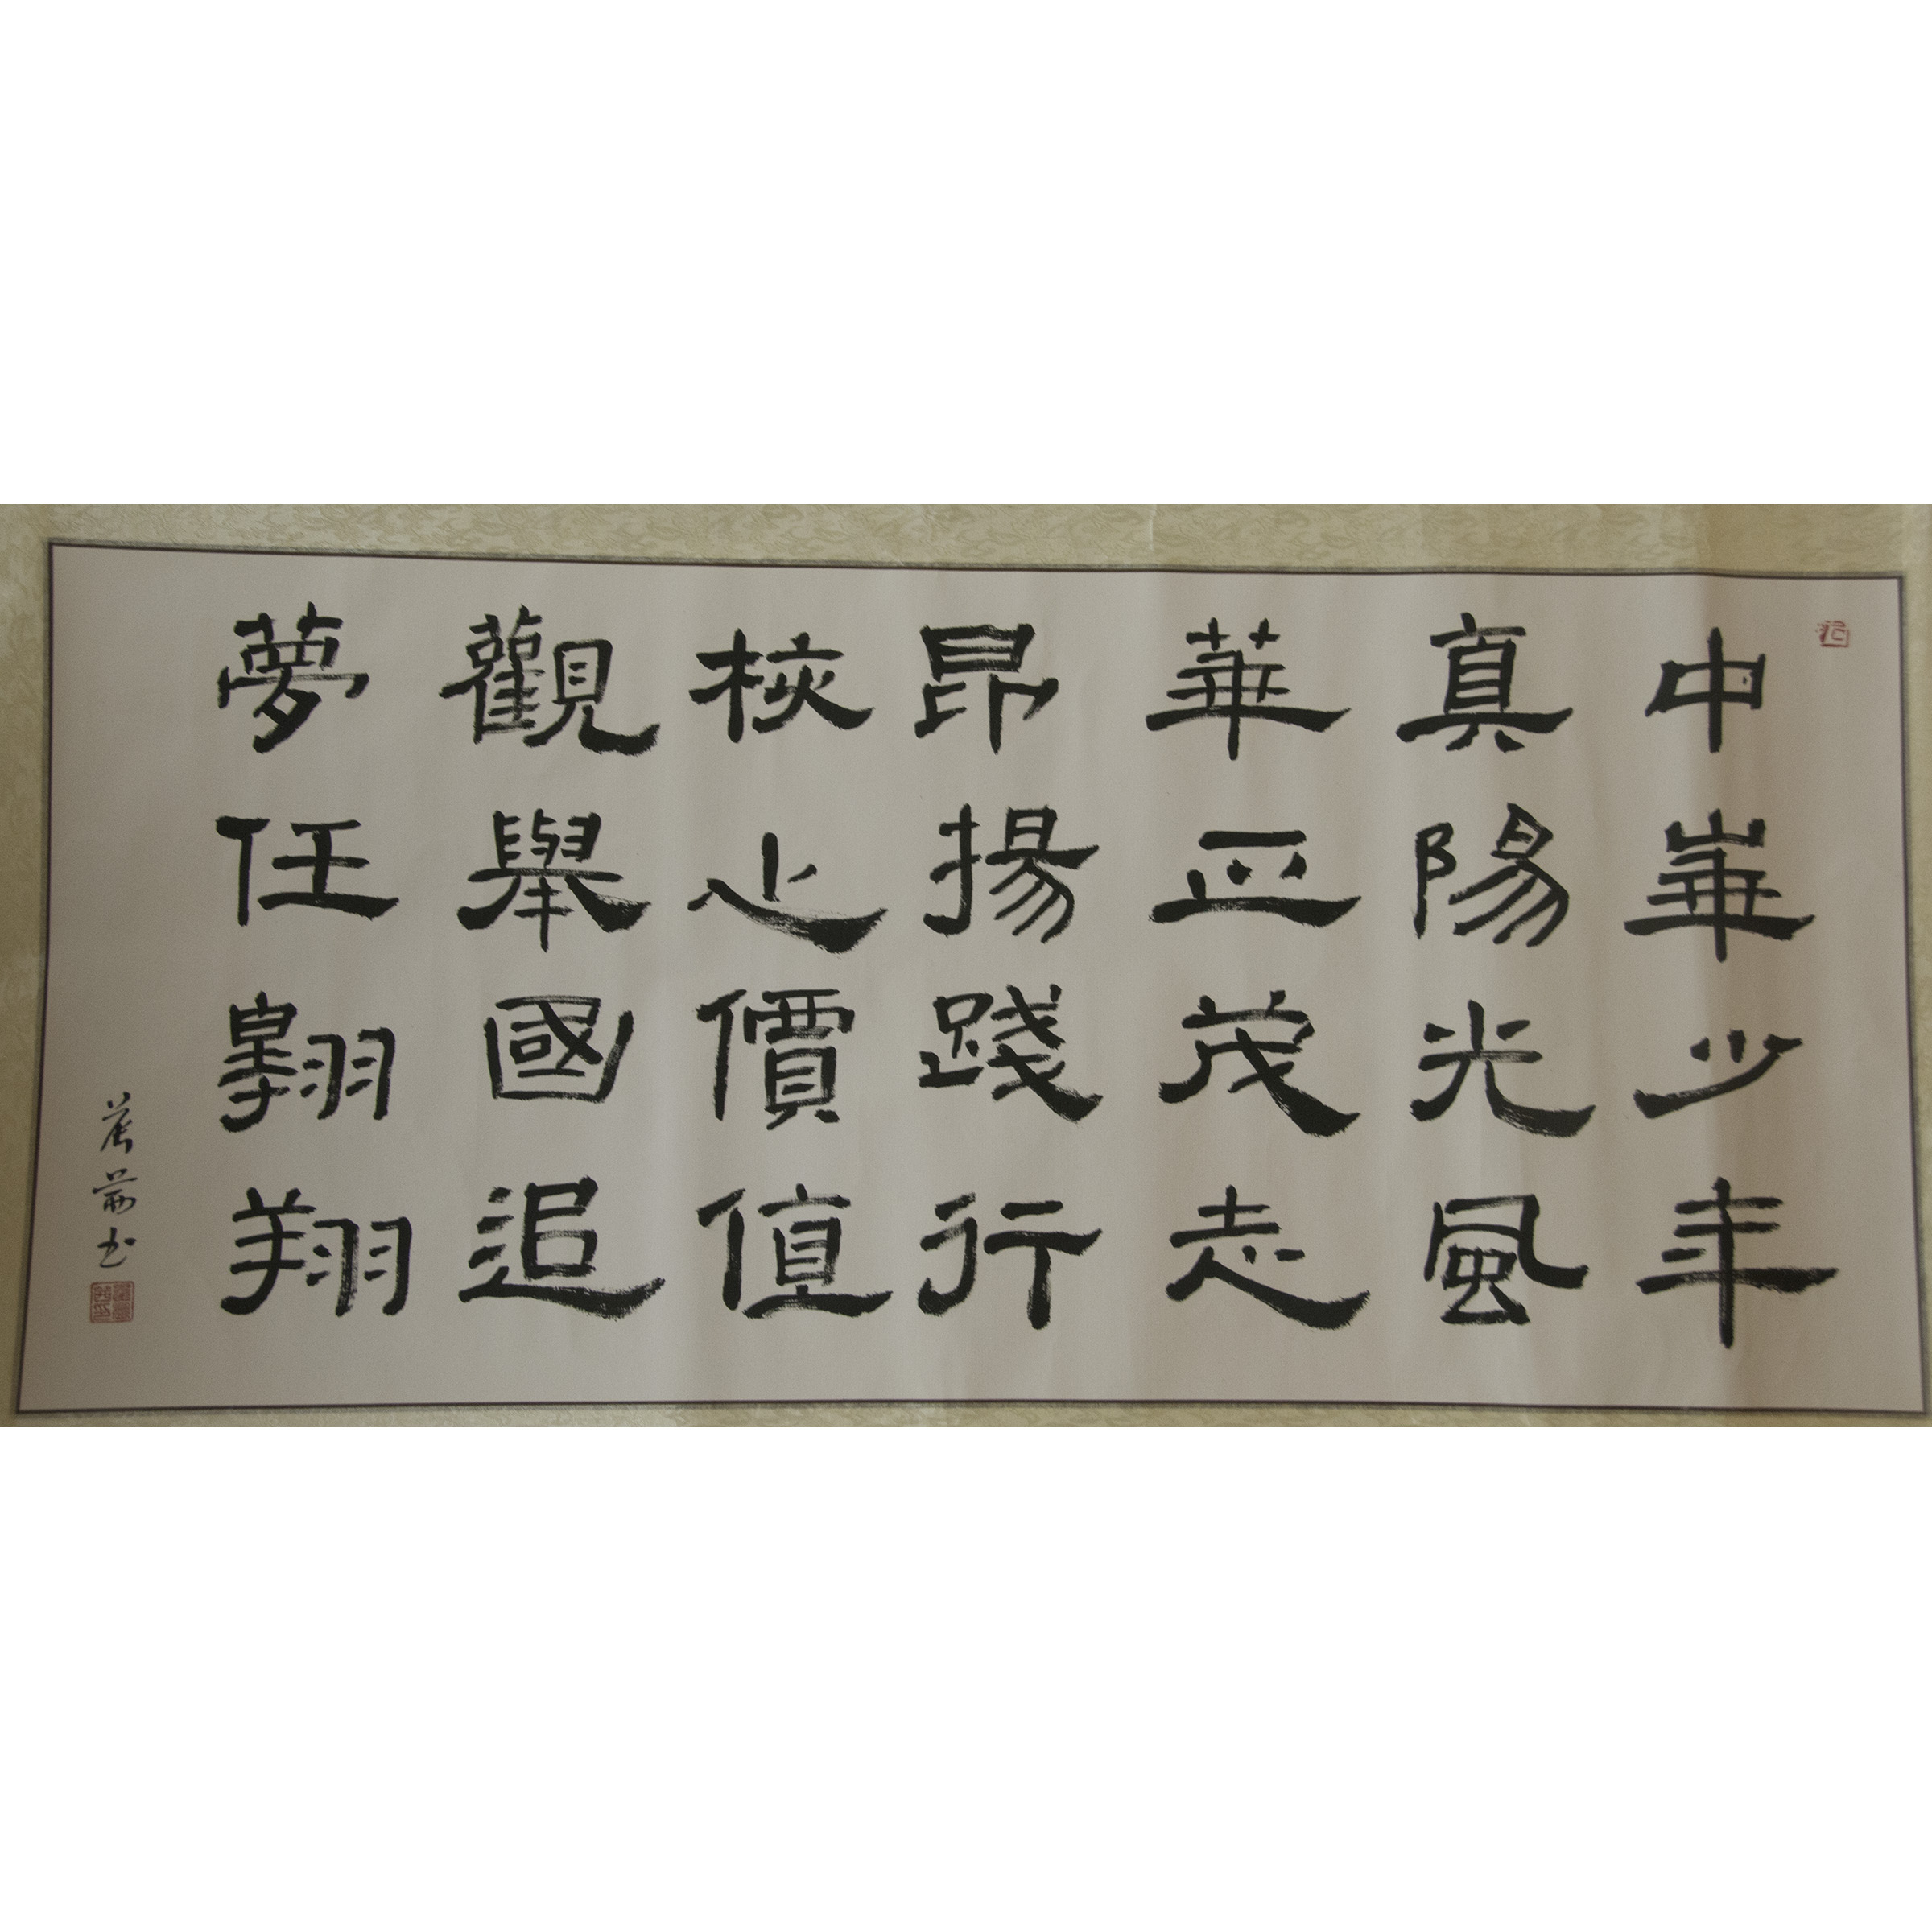 中華少年
真陽光風
華正茂志
昂揚踐行
核心價值
觀舉國追
夢任翱翔
書